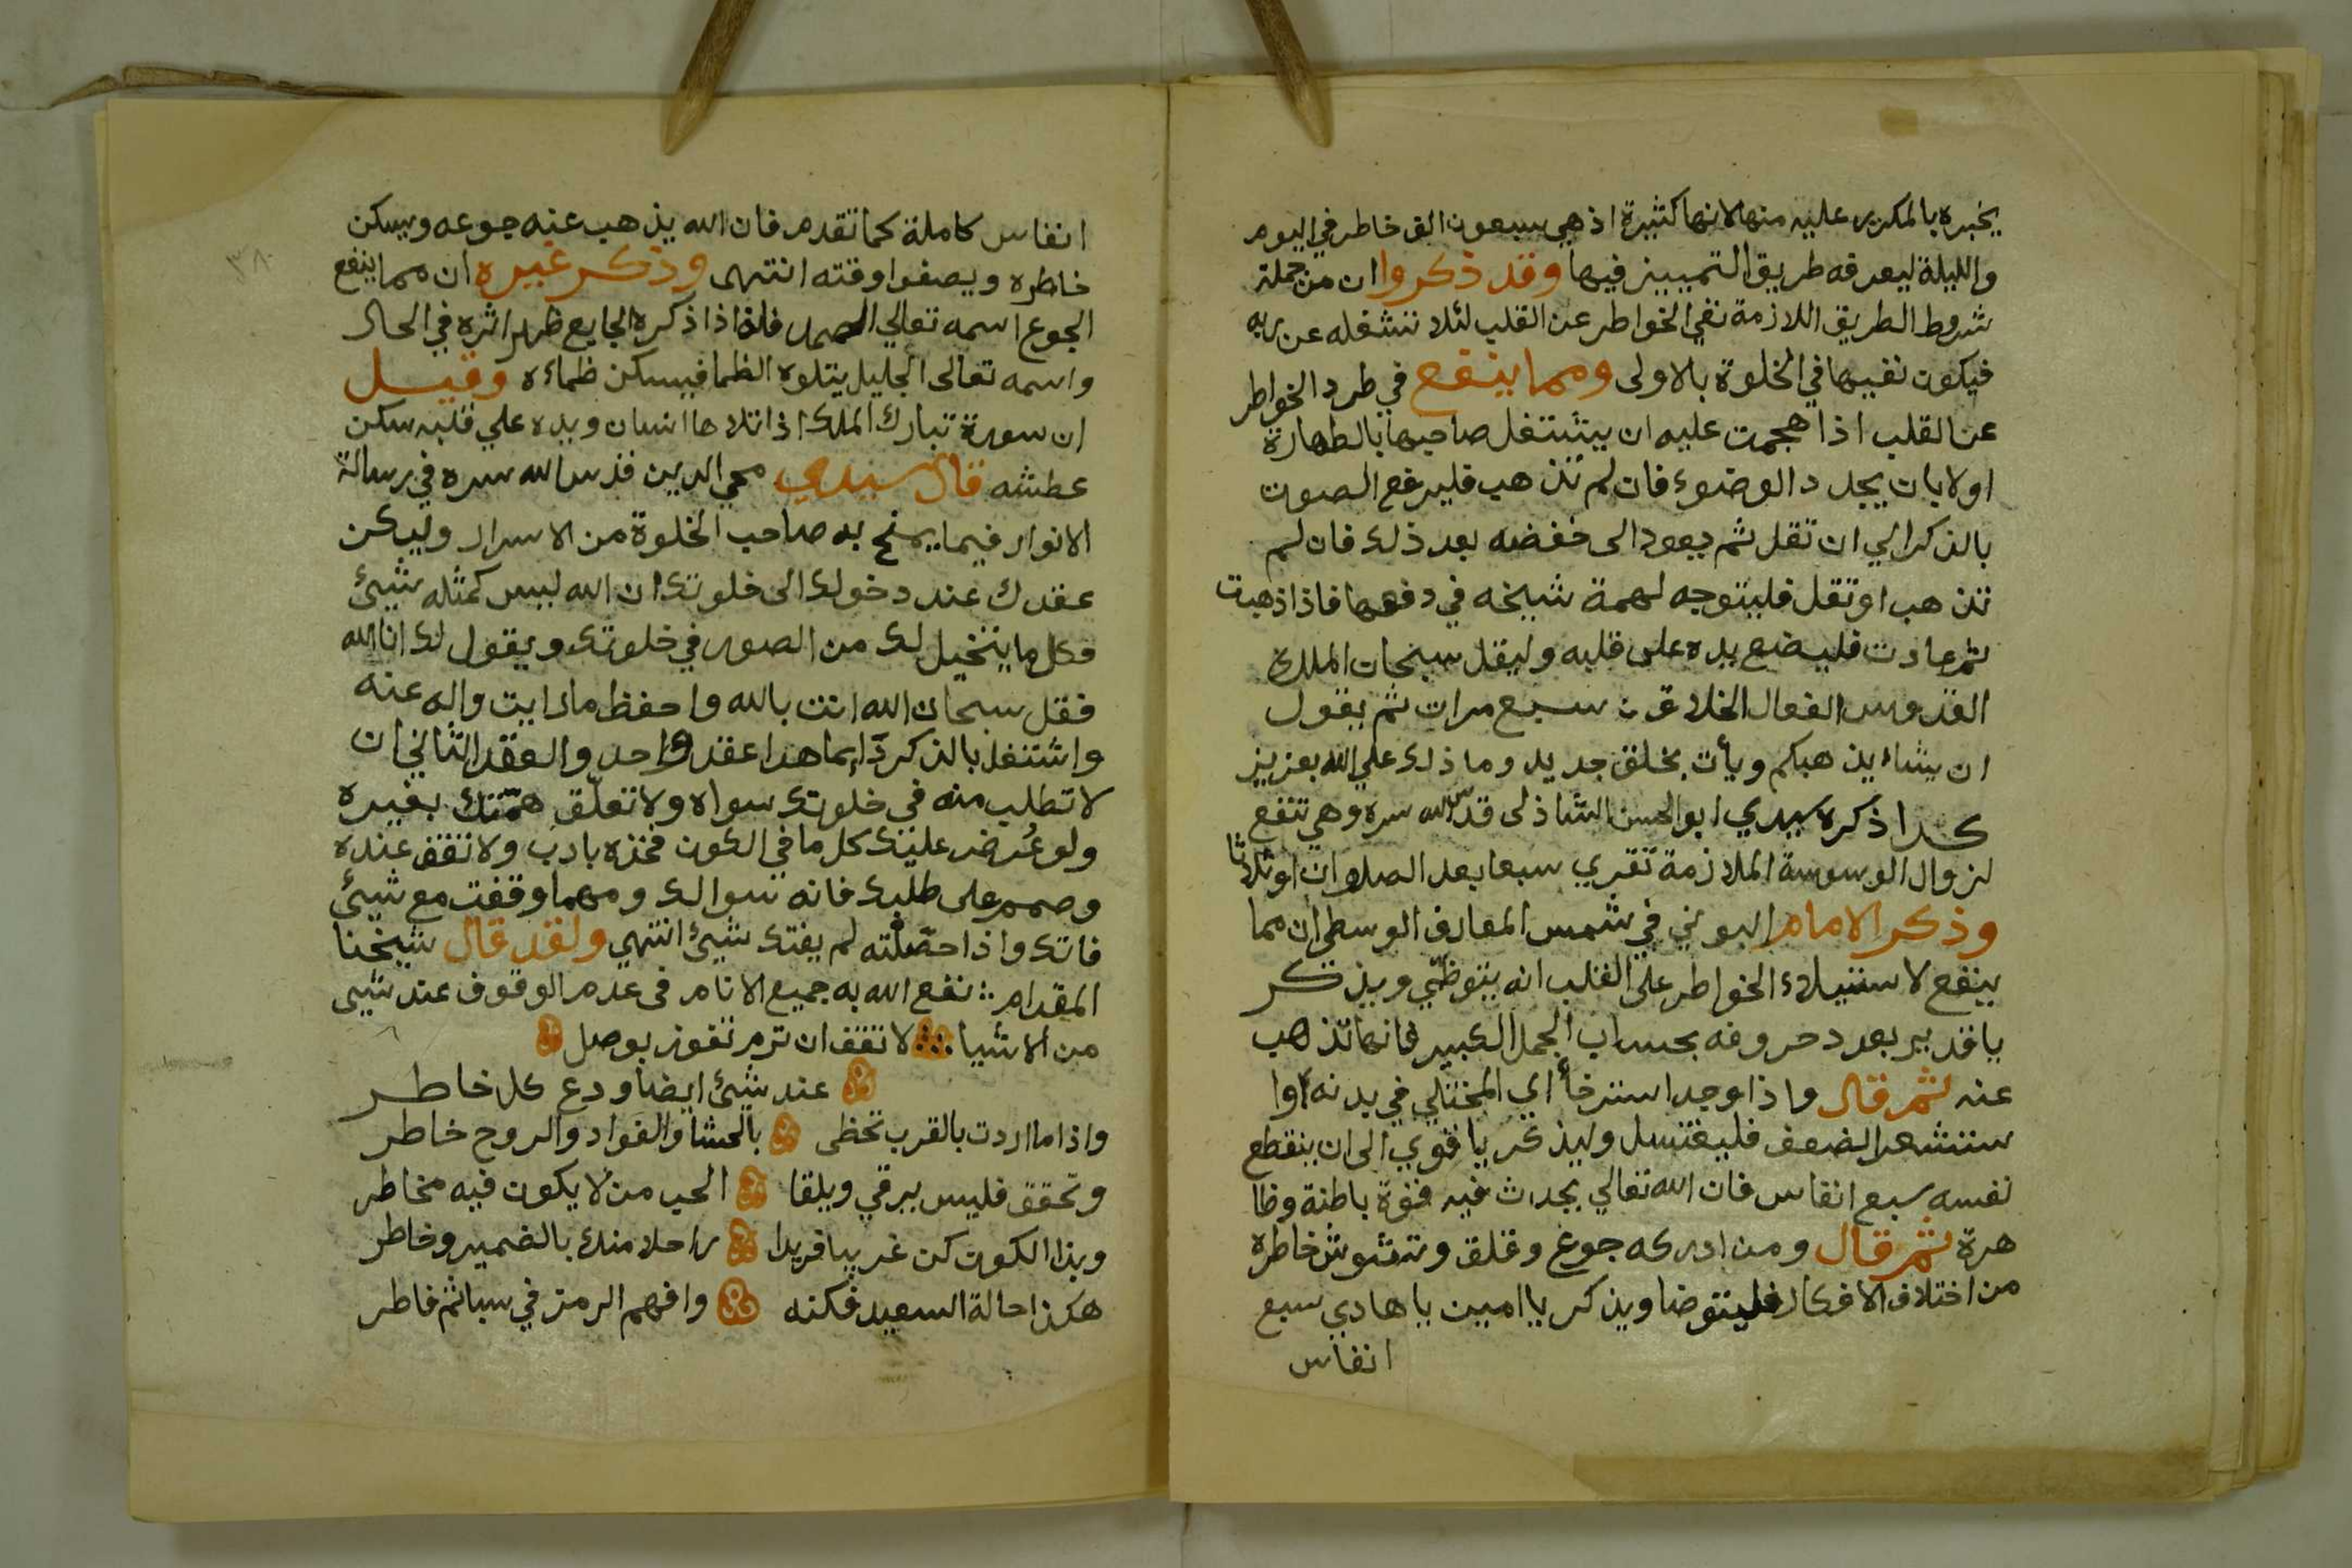 يخبره بالمكرر عليه منها لانها كثيرة اذ هي سبعون الف خاطر في اليوم
والليلة ليعرفه طريق التمييز فيها وقد ذكروا ان من جملة
شروط الطريق اللازمة نفي الخواطر عن القلب لئلا تشغله عن ربه
فيكون نفيها في الخلوة بالاولى ومما ينفع في طرد الخواطر
عن القلب اذا هجمت عليه ان يشتغل صاحبها بالطهارة
اولا بان يجدد الوضوء فان لم تذهب فليرفع الصوت
بالذكر الي ان تقل ثم يعود الى خفضه بعد ذلك فان لم
تذهب او تقل فليتوجه لهمة شيخه في دفعها فاذا ذهبت
ثم عادت فليضع يده على قلبه وليقل سبحان الملك
القدوس الفعال الخلاق سبع مرات ثم يقول
ان يشاء يذهبكم ويأت بخلق جديد وما ذلك علي الله بعزيز
كذا ذكره سيدي ابو الحسن الشاذلى قدس الله سره وهي تنفع
لزوال الوسوسة الملازمة تقري سبعا بعد الصلوات او ثلاثا
وذكر الامام البوني في شمس المعارف الوسطي ان مما
ينفع لاستيلاء الخواطر على القلب انه يتوظى ويذكر
يا قدير بعدد حروفه بحساب الجمل الكبير فانها تذهب
عنه ثم قال واذا وجد استرخأ اي المختلي في بدنه اوا
ستشعر الضعف فليغتسل وليذكر يا قوي الى ان ينقطع
نفسه سبع انفاس فان الله تعالي يحدث فيه قوة باطنة وظا
هرة ثم قال ومن ادركه جوع وقلق وتشوش خاطره
من اختلاف الافكار فليتوضا ويذكر يا امين يا هادي سبع
انفاس
انفاس كاملة كما تقدم فان الله يذهب عنه جوعه ويسكن
خاطره ويصفوا وقته انتهى وذكر غيره ان مما ينفع
الجوع اسمه تعالي الصمد فاذا ذكره الجايع ظهر اثره في الحال
واسمه تعالى الجليل يتلوه الظما فيسكن ظماءه وقيل
ان سورة تبارك الملك اذا تلاها انسان ويده علي قلبه سكن
عطشه قال سيدي محي الدين قدس الله سره في رسالة
الانوار فيما يمنح به صاحب الخلوة من الاسرار وليكن
عقدك عند دخولك الى خلوتك ان الله ليس كمثله شيئ
فكل ما يتخيل لك من الصور في خلوتك ويقول لك انا الله
فقل سبحان الله انت بالله واحفظ ما رايت واله عنه
واشتغل بالذكر دايما هدا عقد واحد والعقد الثاني ان
لا تطلب منه في خلوتك سواه ولا تعلّق همّتك بغيره
ولو عُرض عليك كل ما في الكون فخذه بادب ولا تقف عنده
وصمم على طلبك فانه سوالك ومهما وقفت مع شيئ
فاتك واذا حصّلته لم يفتك شيئ انتهي ولقد قال شيخنا
المقدام نفع الله به جميع الانام فى عدم الوقوف عند شيى
من الاشيا لا تقف ان ترم تفوز بوصل
عند شيئ ايضا ودع كل خاطر
واذا ما اردت بالقرب تحظى بالحشا والفواد والروح خاطر
وتحقق فليس يرقي ويلقا الحب من لا يكون فيه مخاطر
وبذا الكون كن غريبا فريدا راحلا منك بالضمير وخاطر
هكذا حالة السعيد فكنه وافهم الرمز في سبا ثم فاطر
٣٨